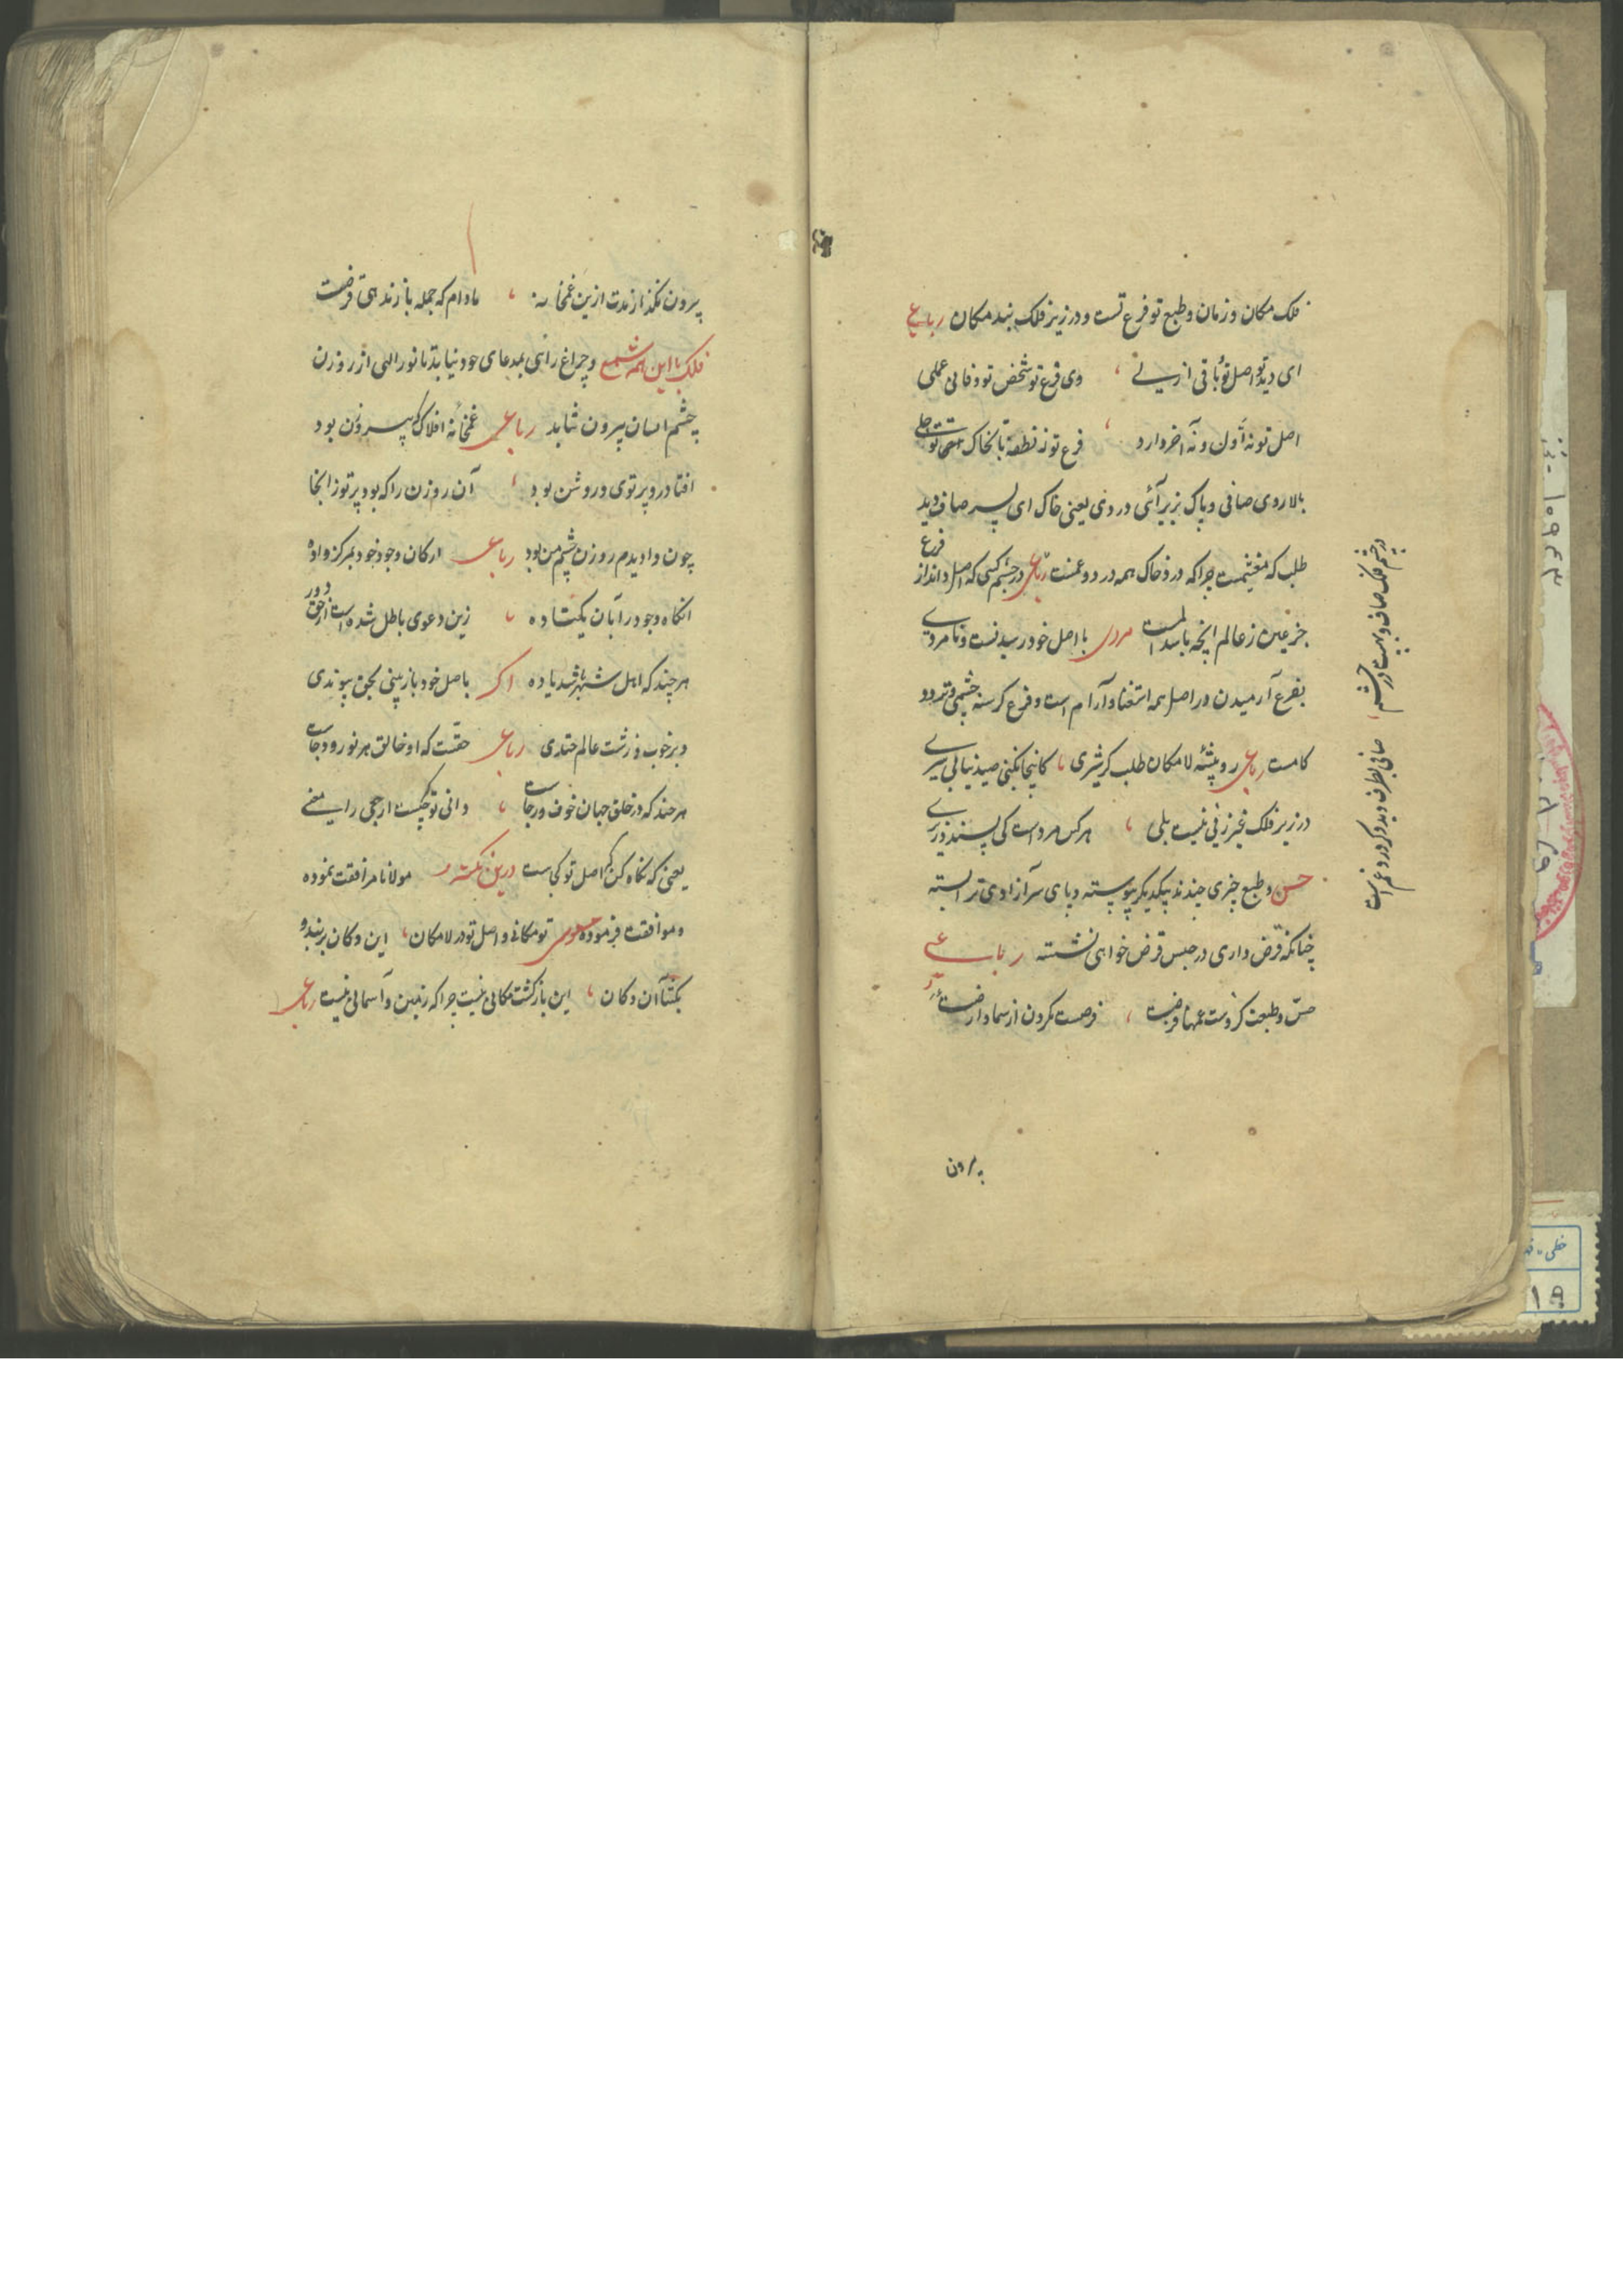 فلک مکان و زمان و طبع تو فرع تست و در زیر فلک بند مکان رباعی
ای دیده تو اصل تو باقی ازلی ، وی فرع تو شخص تو و فانی عملی
اصل تو نه اول و نه آخر دارد ، فرع تو ز نطفه تا بخاک
بالا روی صافی و پاک بزیر آئی دردی یعنی خاک ای پسر صاف دید
طلب که مغتنمست چرا که درد خاک همه درد و غمست رباعی در چشم کسی که اصل داند از فرع
جز عین ز عالم آنچه باشد مردی با اصل خود رسیدنست و نامردی
بفرع آرمیدن در اصل همه استغنا و آرام است و فرع گرسنه چشمی و تردد
کامست رباعی رو بیشه لامکان طلب گر شیری ، کاینجا نکنی صید نیابی سیری
در زیر فلک غیر زنی نیست بلی ، هر کس مرد است کی پسندد زیری
حس و طبع چیزی چندند بیکدیگر پیوسته و پای سر آزادی ترا بسته
چنانکه قرض داری در حبس قرض خواهی نشسته رباعی
حس و طبعت گروست غمها قرضت ، فرصت مکرون از سما و ارضت
بیرون
در چشم فلک صاف و در چشم
صافی بطرف دید و گر درد غم است
بیرون نکنند از مدت ازین غمخانه ، مادام که جمله باز ندهی قرضت
فلک با این همه شمع و چراغ راهی بمدعای خود نیابد تا نور الهی از روزن
چشم انسان بیرون نتابد رباعی غمخانه افلاک که بی روزن بود
افتاد در و پرتوی و روشن بود ، آن روزن را که بود پرتو ز آنجا
چون وادیدم روزن چشم من بود رباعی ارکان وجود خود بمرکز داده
انگاه وجود را بآن یکتا ده ، زین دعوی باطل شده است از حق دور
هر چند که اهل شهر باشد یا ده اگر باصل خود بازبینی بحق پیوندی
و بر خوب و زشت عالم خندی رباعی حقست که او خالق هر نور و دجاست
هر چند که در خلق جهان خوف و رجاست ، دانی تو که چیست ارجعی را معنی
یعنی که نگاه کن که اصل تو کجاست درین نکته مولانا مرافقت نموده
و موافقت فرموده مثنوی تو مکانی و اصل تو در لامکان ، این دکان بربند و
بگشا آن دکان ، این بازگشت مکانی نیست چرا که زمین و آسمانی نیست رباعی